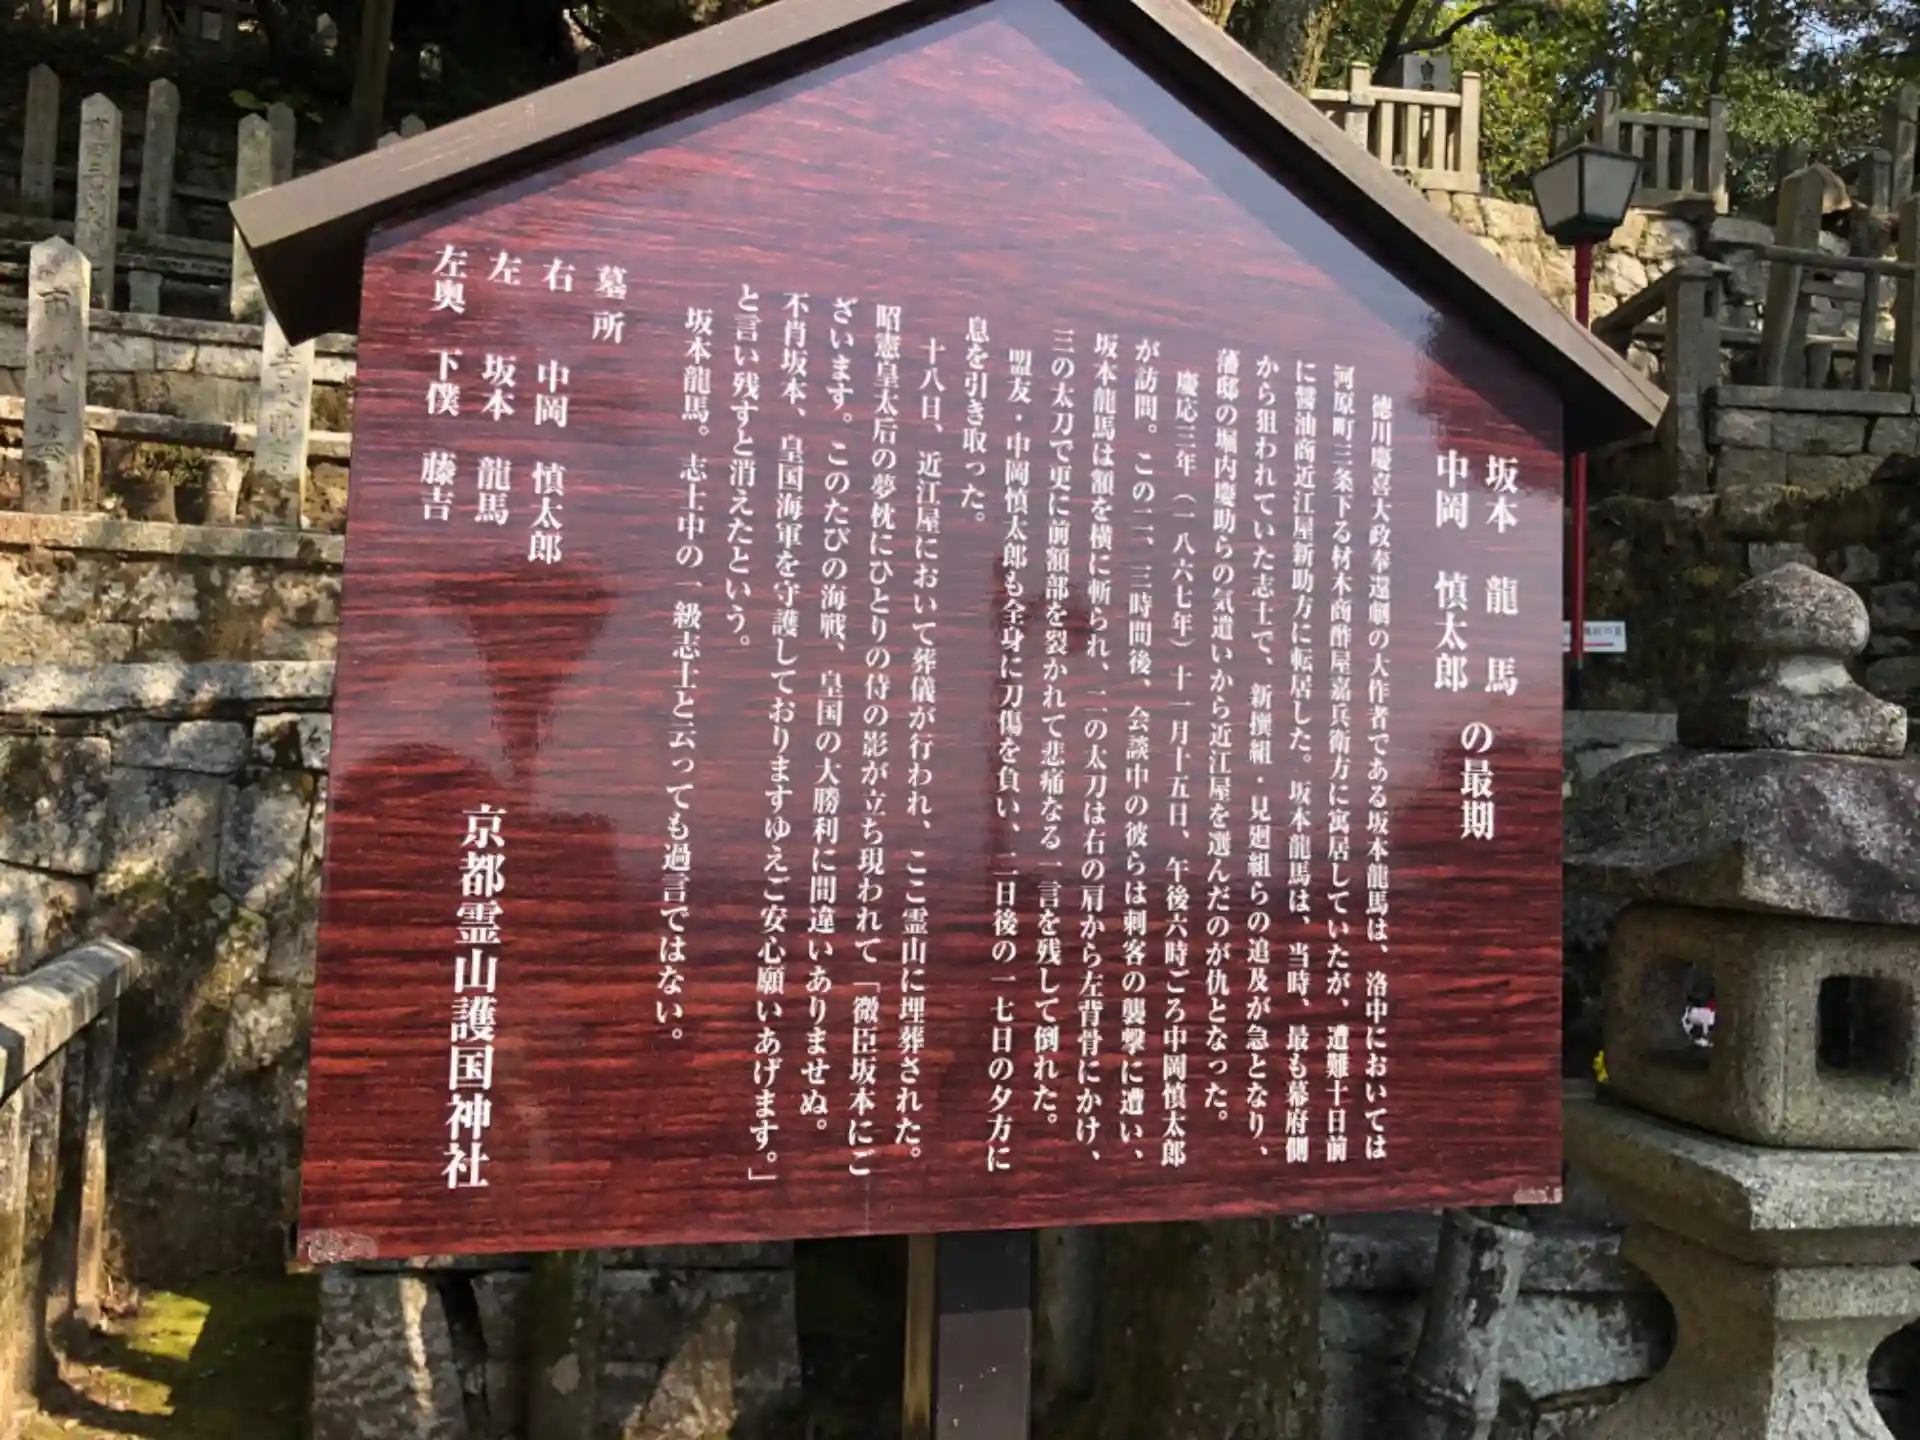 坂本 龍馬
中岡 慎太郎
の最期
徳川慶喜大政奉還劇の大作者である坂本龍馬は、洛中においては
河原町三条下る材木商酢屋嘉兵衛方に寓居していたが、遭難十日前
に醤油商近江屋新助方に転居した。坂本龍馬は、当時、最も幕府側
から狙われていた志士で、新撰組・見廻組らの追及が急となり、
藩邸の堀内慶助らの気遣いから近江屋を選んだのが仇となった。
慶応三年（一八六七年）十一月十五日、午後六時ごろ中岡慎太郎
が訪問。この二、三時間後、会談中の彼らは刺客の襲撃に遭い、
坂本龍馬は額を横に斬られ、二の太刀は右の肩から左背骨にかけ、
三の太刀で更に前額部を裂かれて悲痛なる一言を残して倒れた。
盟友・中岡慎太郎も全身に刀傷を負い、二日後の一七日の夕方に
息を引き取った。
十八日、近江屋において葬儀が行われ、ここ霊山に埋葬された。
昭憲皇太后の夢枕にひとりの侍の影が立ち現われて「微臣坂本にご
ざいます。このたびの海戦、皇国の大勝利に間違いありませぬ。
不肖坂本、皇国海軍を守護しておりますゆえご安心願いあげます。」
と言い残すと消えたという。
坂本龍馬。志士中の一級志士と云っても過言ではない。
墓所
右 中岡 慎太郎
左 坂本 龍馬
左奥 下僕 藤吉
京都霊山護国神社